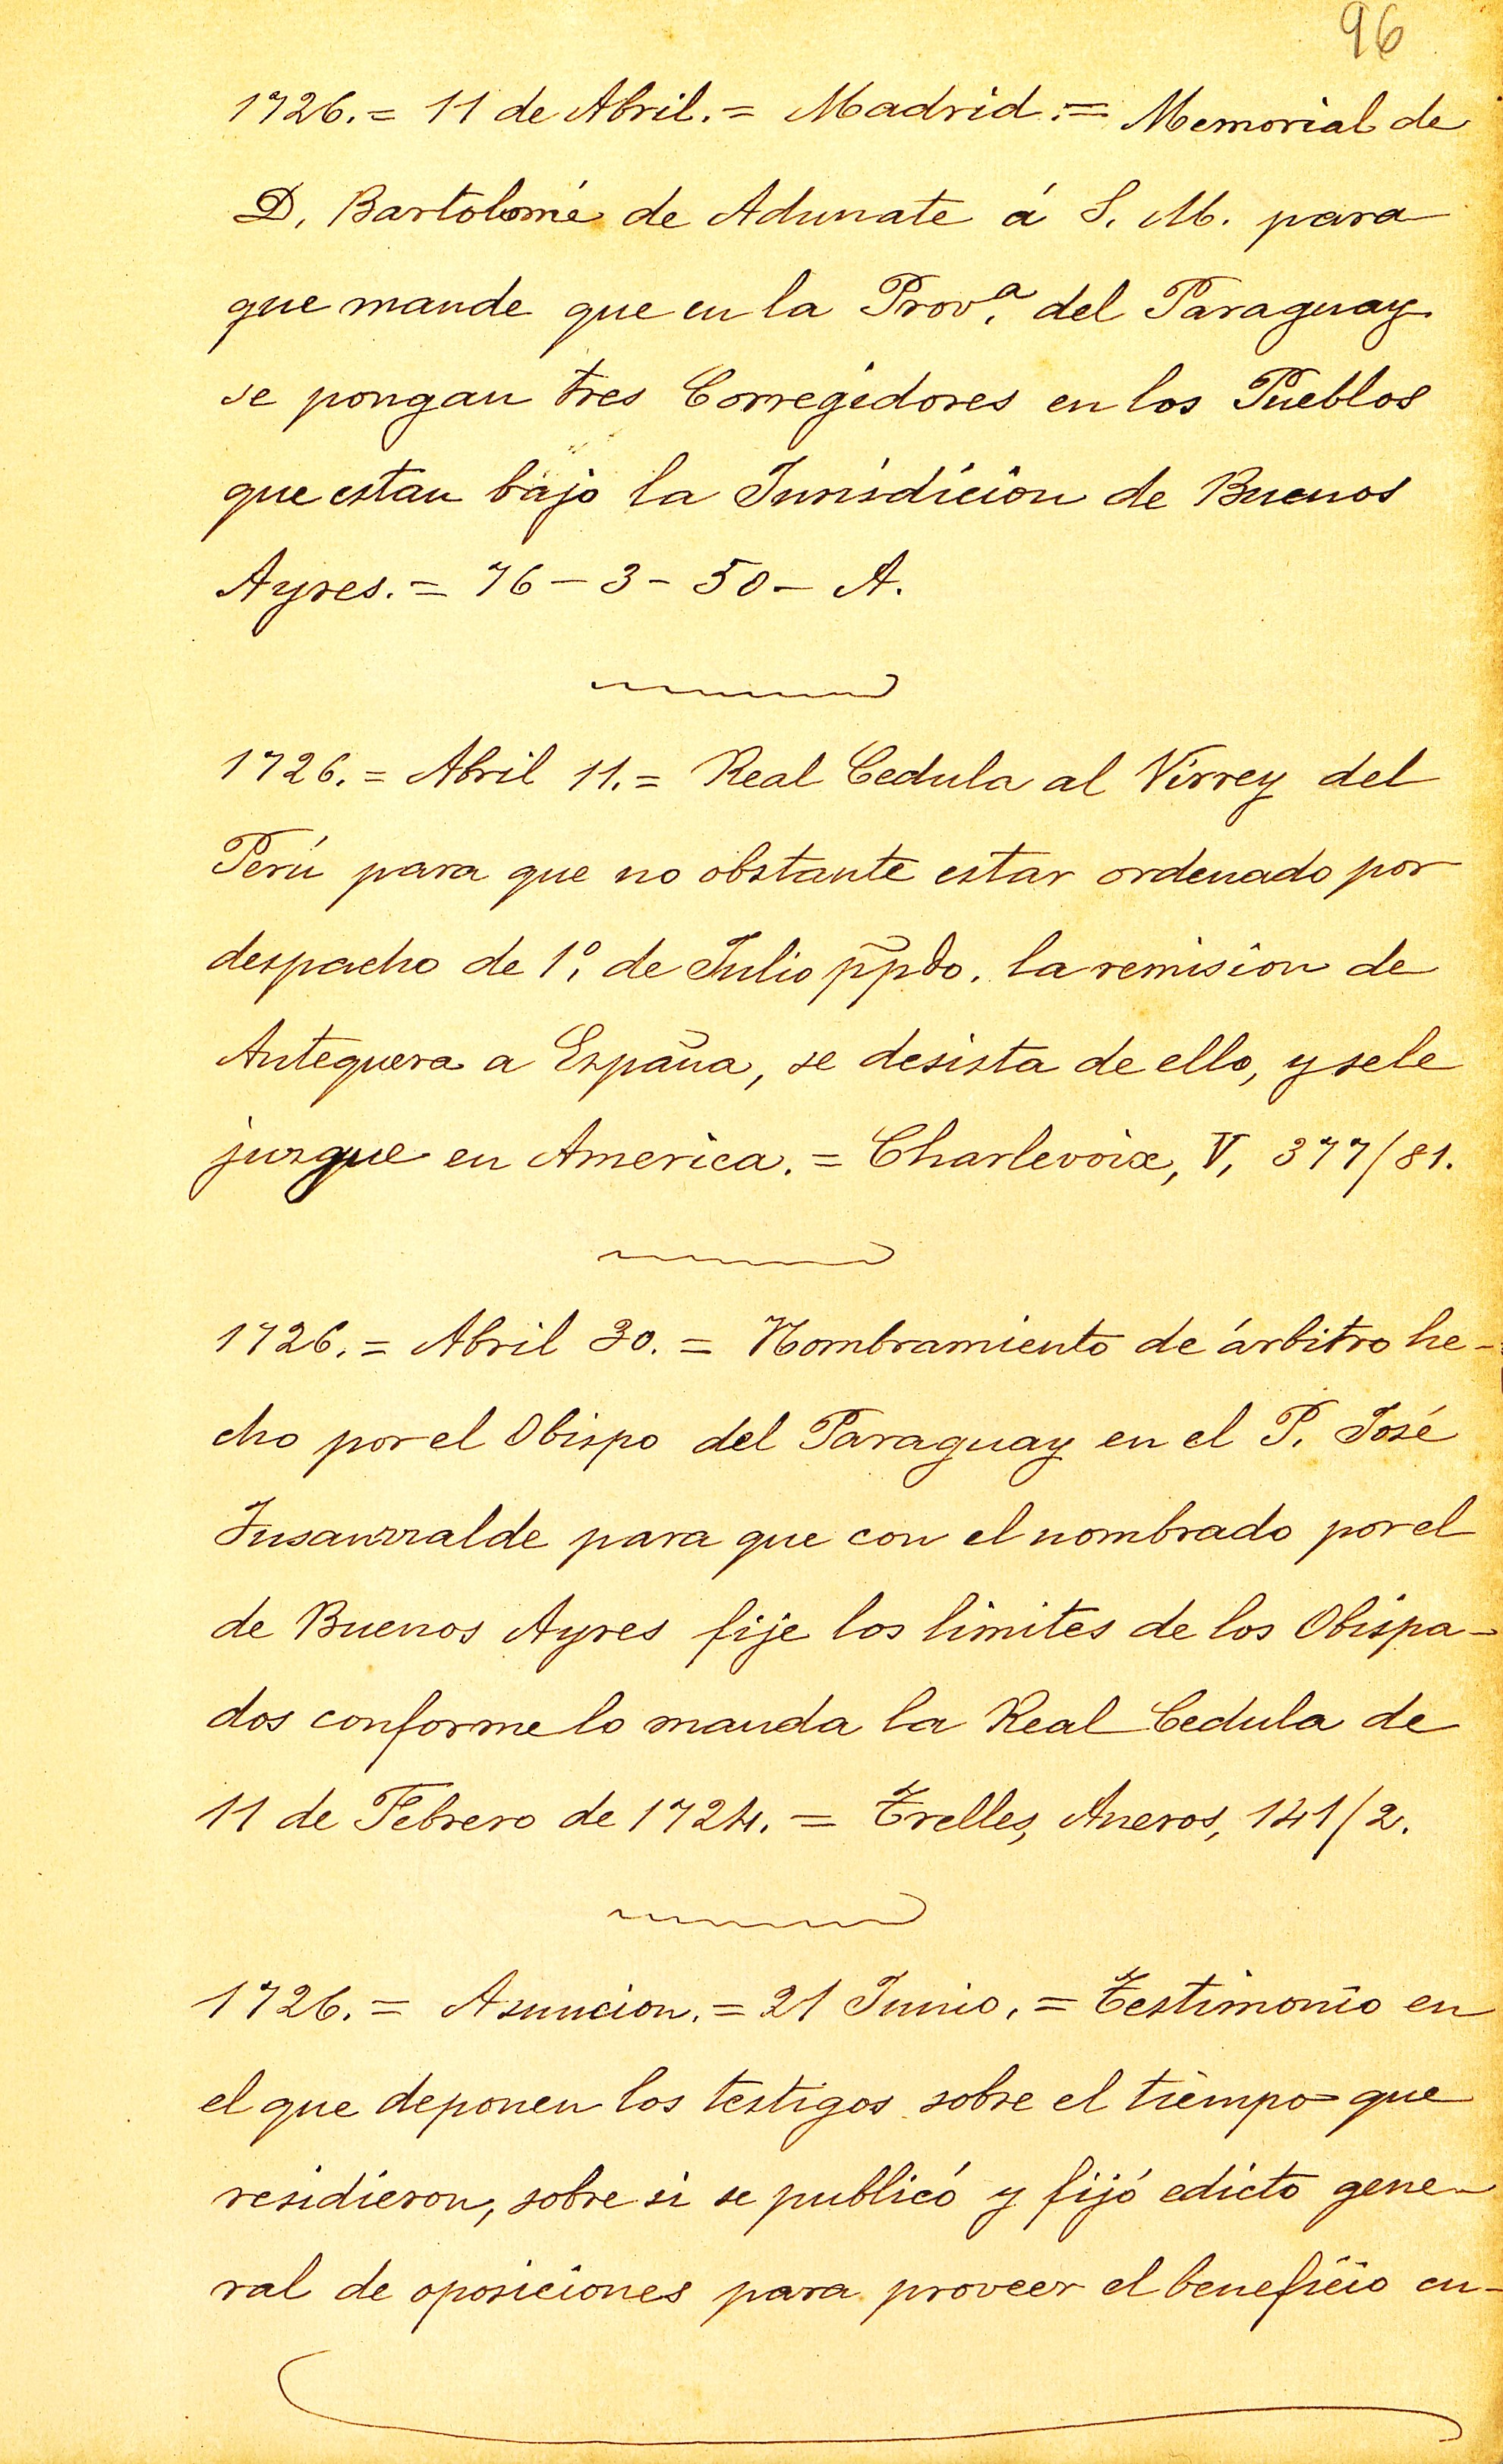 96
1726. = 11 de Abril. = Madrid. = Memorial de
D. Bartolomé de Adunate á S. M. para
que mande que en la Prov.ª del Paraguay
se pongan tres Corregidores en los Pueblos
que estan bajo la Jurisdicion de Buenos
Ayres. = 76 - 3 - 50 - A.
1726. = Abril 11. = Real Cedula al Virrey del
Perú para que no obstante estar ordenado por
despacho de 1º. de Julio pp̃do. la remision de
Antequera a España, se desista de ello, y se le
juzgue en America. = Charlevoix, V, 377/81.
1726. = Abril 30. = Nombramiento de árbitro he-
cho por el Obispo del Paraguay en el P. José
Insaurralde para que con el nombrado por el
de Buenos Ayres fije los limites de los Obispa-
dos conforme lo manda la Real Cedula de
11 de Febrero de 1724. = Trelles, Anexos, 141/2.
1726. = Asuncion. = 21 Junio. = Testimonio en
el que deponen los testigos sobre el tiempo que
residieron, sobre si se publicó y fijó edicto gene-
ral de oposiciones para proveer el beneficio cu-